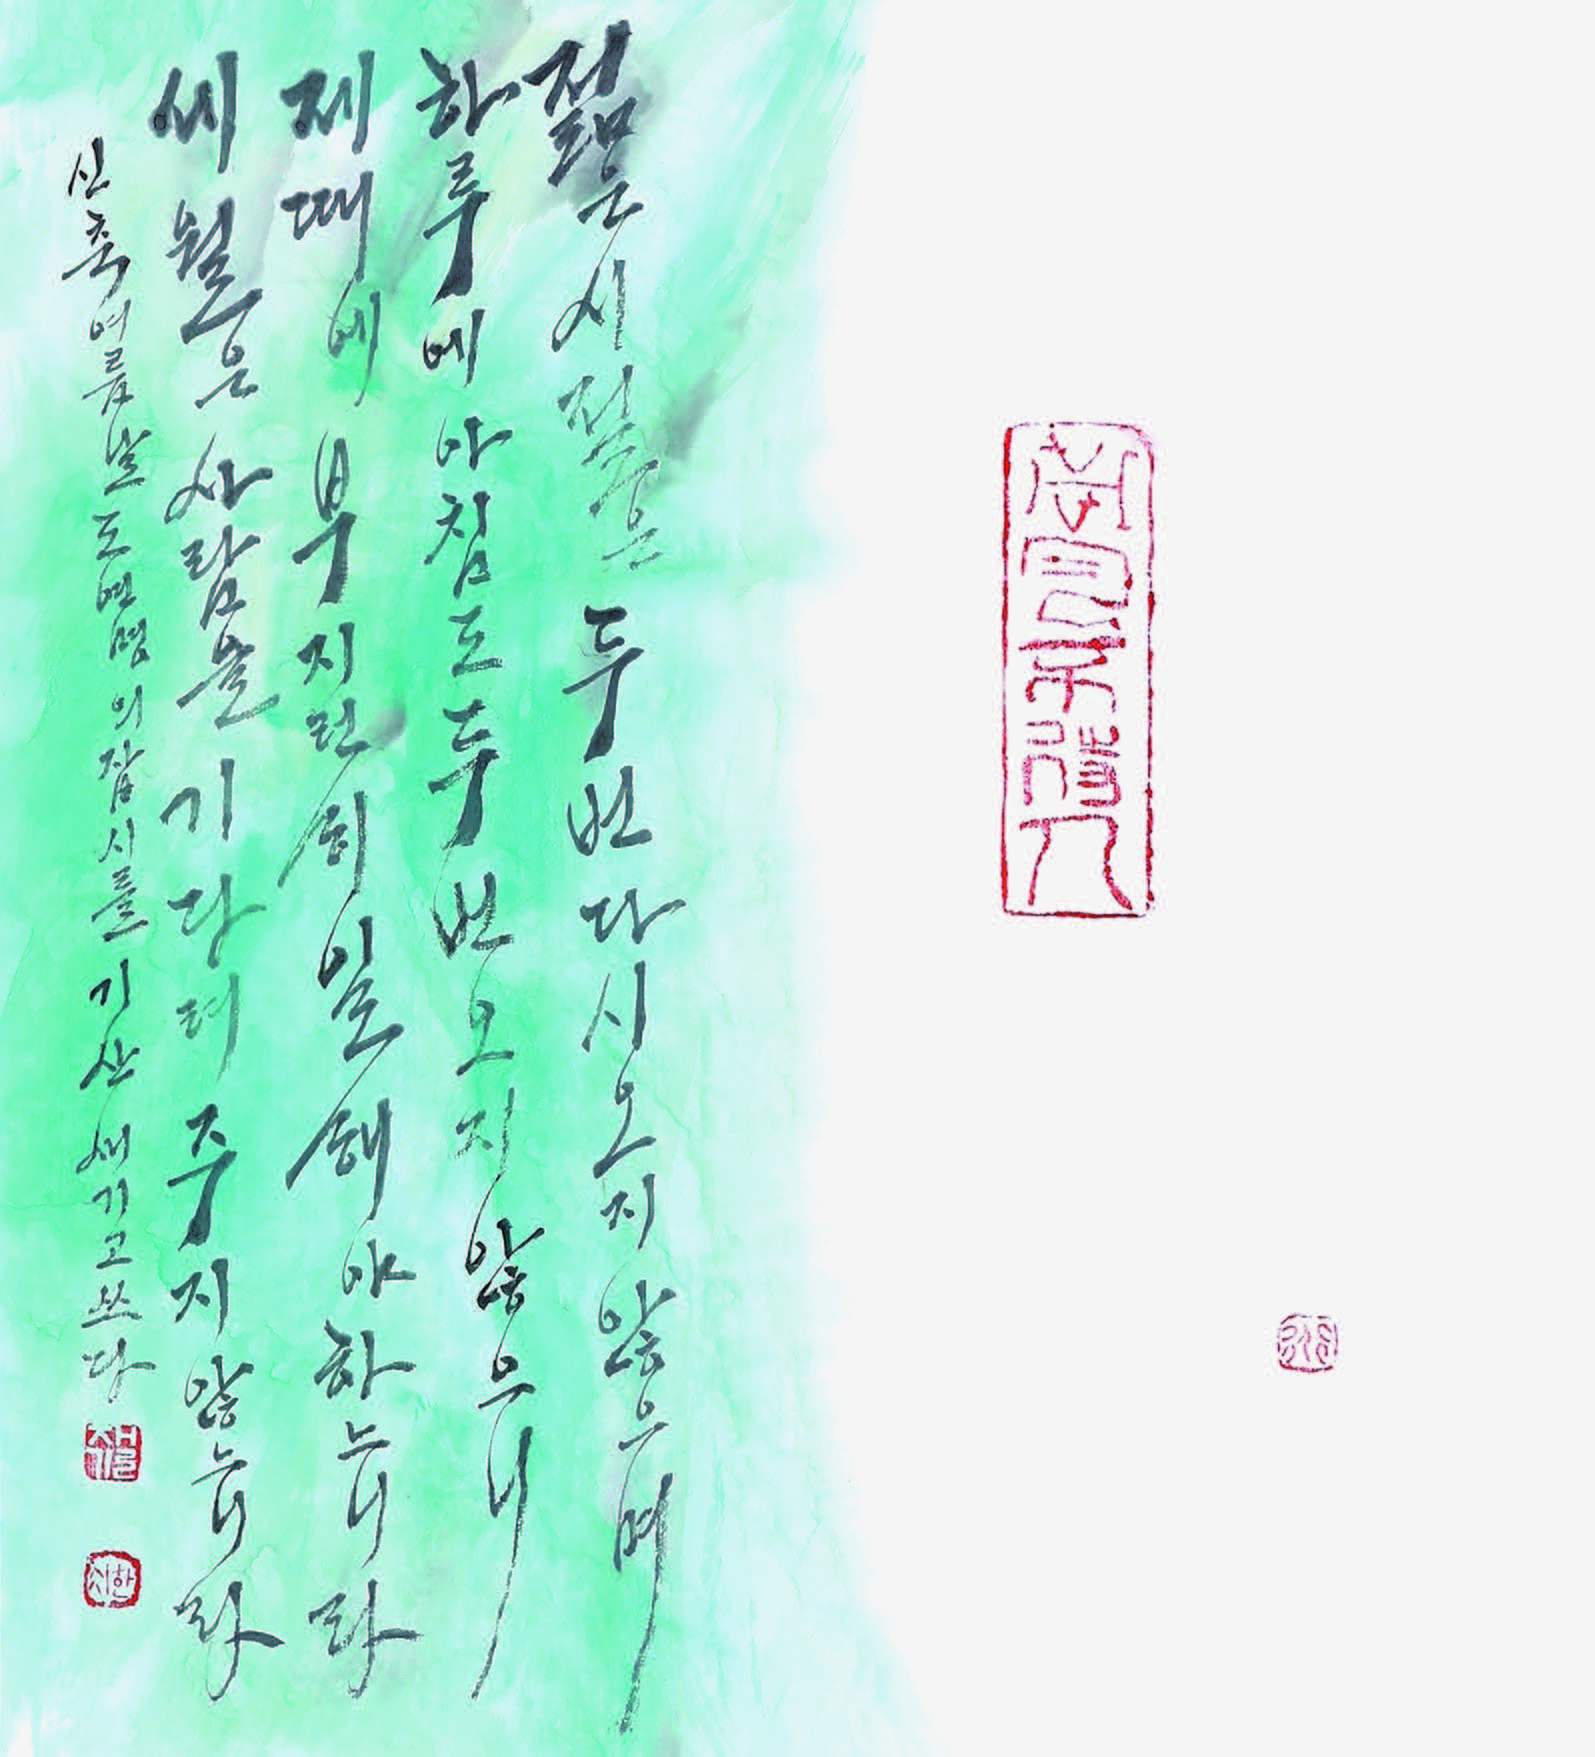 젊은 시절은 두 번 다시 오지 않으며
하루에 아침도 두 번 오지 않으니
제때에 부지런히 일해야 하느니라
세월은 사람을 기다려 주지 않느니라
신축 여름날 도연명의 잡시를 기산 새기고 쓰다
歲月不待人